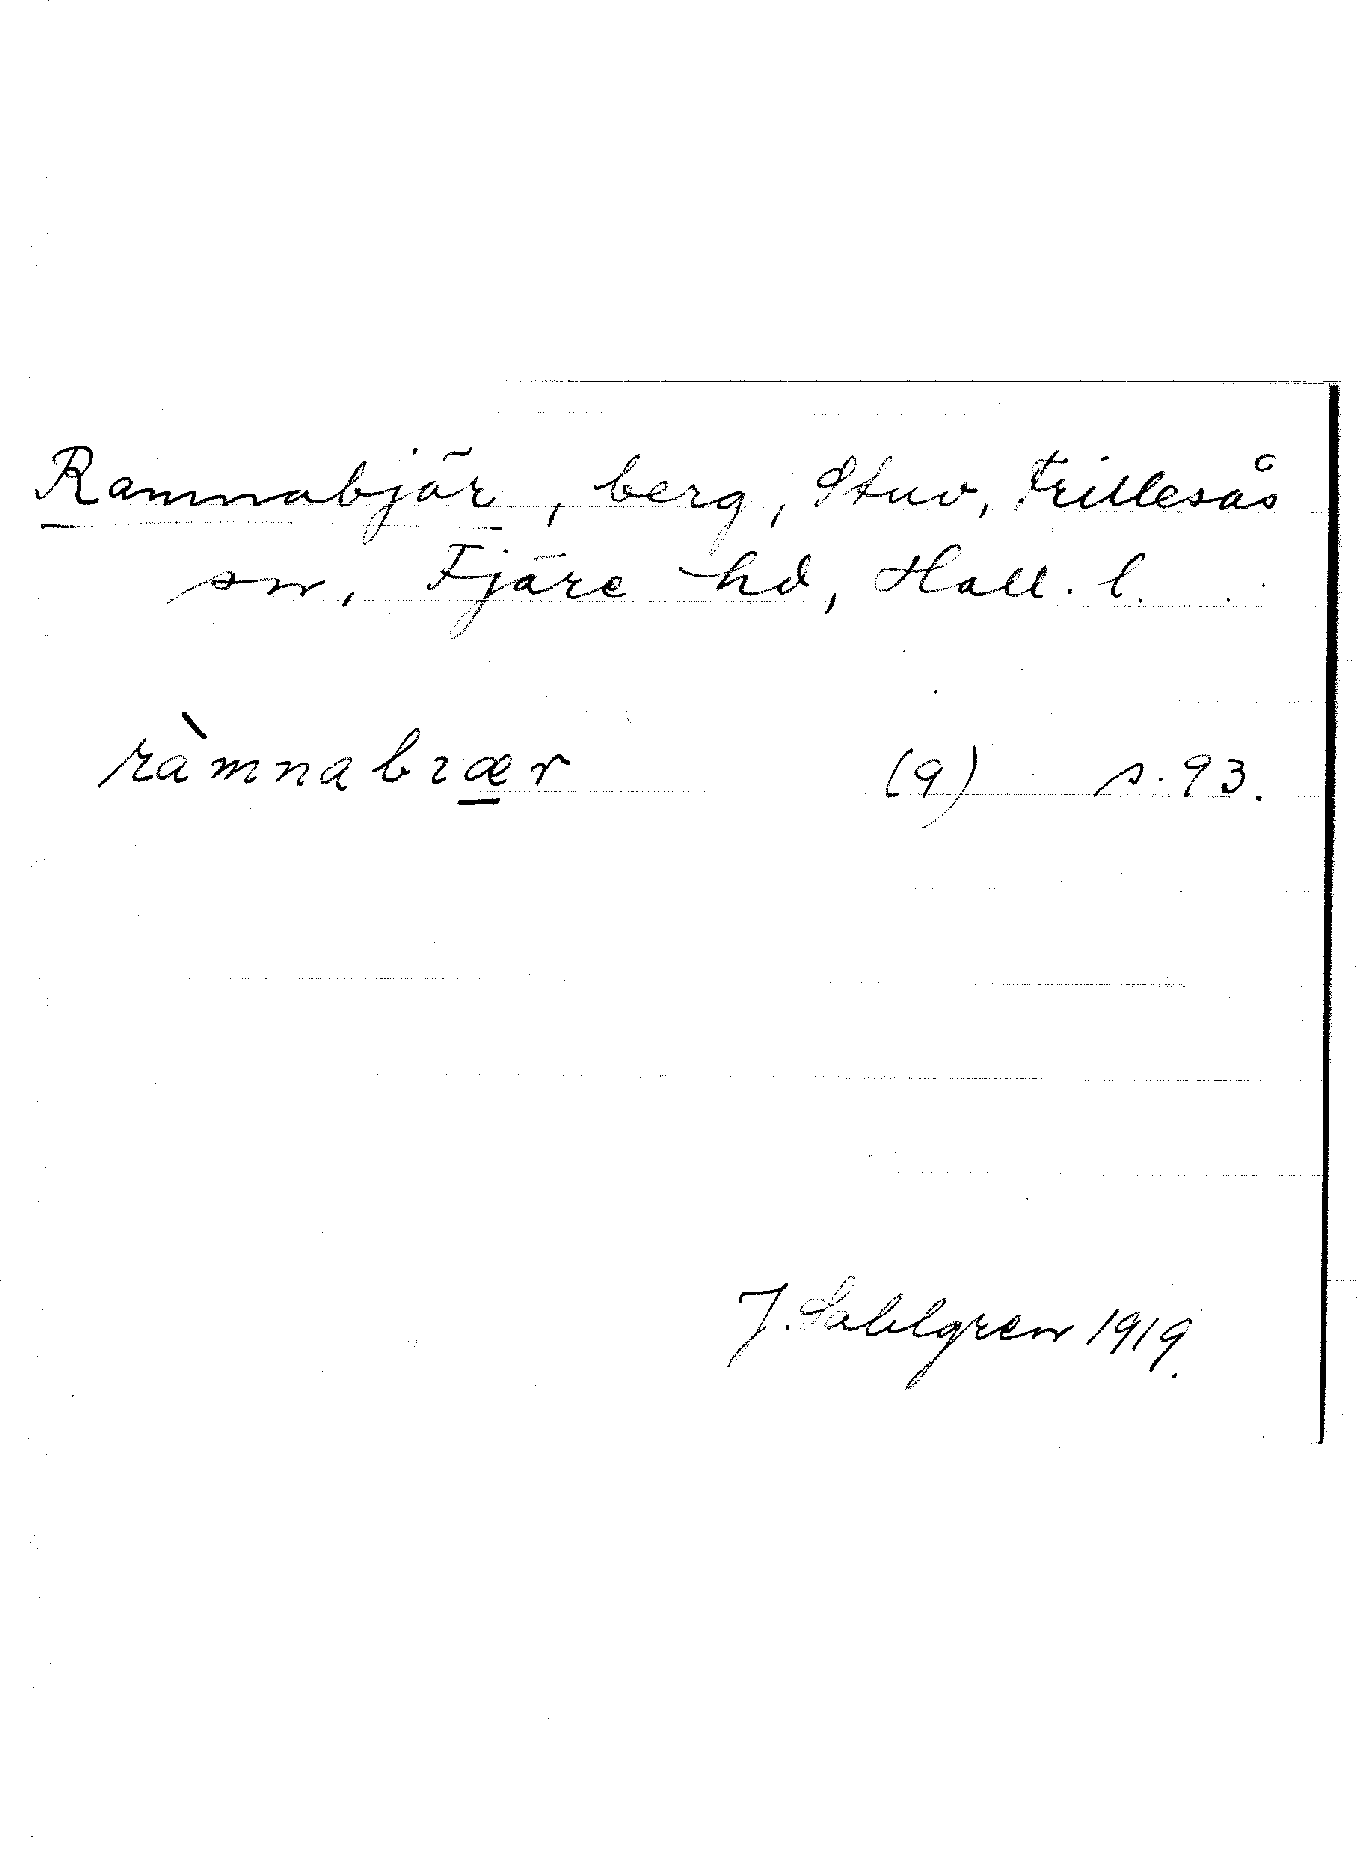 Ramnabjär, berg, Stuv, Frillesås
sn, Fjäre hd, Hall. l.
ràmnabɩær (9) s. 93.
J. Sahlgren 1919.